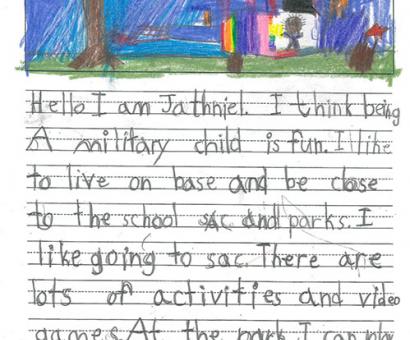 Hello I am Jathniel. I think being
A military child is fun. I like
to live on base and be close
to the school sac and parks. I
like going to sac. There are
lots of activities and video
games. At the park I can play